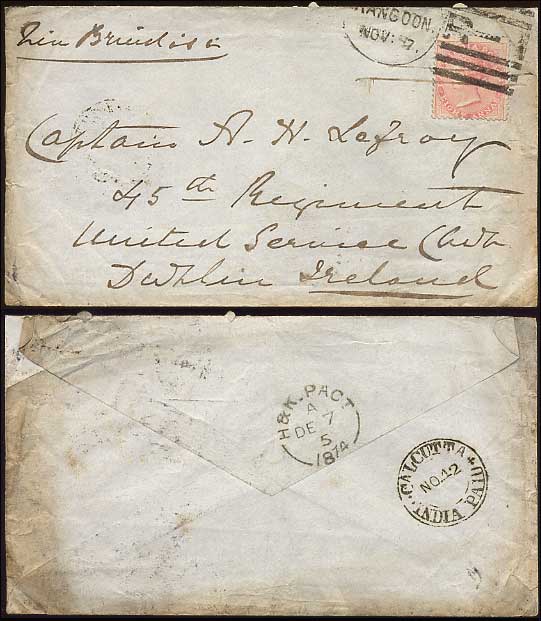 Via Brindisi
RANGOON
NOV: 7
EIGHT ANNAS
Captain A. H. Lefroy
45th Regiment
United Service Club
Dublin Ireland
H&K-PACT
A
DE 7
5
1874
CALCUTTA PAID
NO.12
INDIA